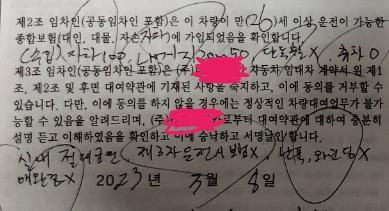 제2조 임차인(공동임차인 포함)은 이 차량이 만(26)세 이상 운전이 가능한
종합보험(대인, 대물, 자손, )에 가입되었음을 확인합니다.
(수입) 자차100 50 단독X 휴차O
제3조 임차인(공동임차인 포함)은 (주) 자동차 임대차 계약서 위 제1
조, 제2조 및 후면 대여약관에 기재된 사항을 숙지하고, 이에 동의를 거부할 수
있습니다. 다만, 이에 동의를 하지 않을 경우에는 정상적인 차량대여업무가 불가
능할 수 있음을 알려드리며, (주) 로부터 대여약관에 대하여 충분히
설명 듣고 이해하였음을 확인하고 이에 승낙하고 서명날인합니다.
실내 전대금연, 제3자운전시보험X,
X 2023년 3월 8일